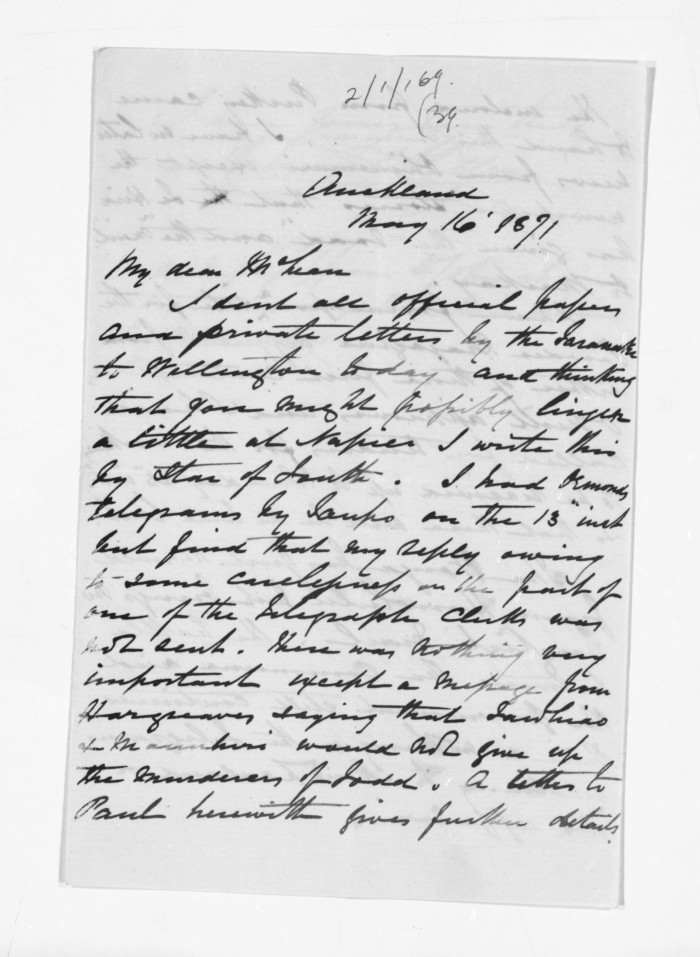 2/1/169.
(39.
Auckland
May 16' 1871
My dear McLean
I sent all official papers
and private letters by the Taranaki
to Wellington today and thinking
that you might possibly linger
a little at Napier I write this
by Star of South. I had Ormonds
telegrams by Taupo on the 13" inst
but find that my reply owing
to some carelessness on the part of
one of the Telegraph Clerks was
not sent. There was nothing very
important except a message from
Hargreaves saying that Tawhiao
& would not give up
the murderers of Todd. A letter to
Paul herewith gives further details.